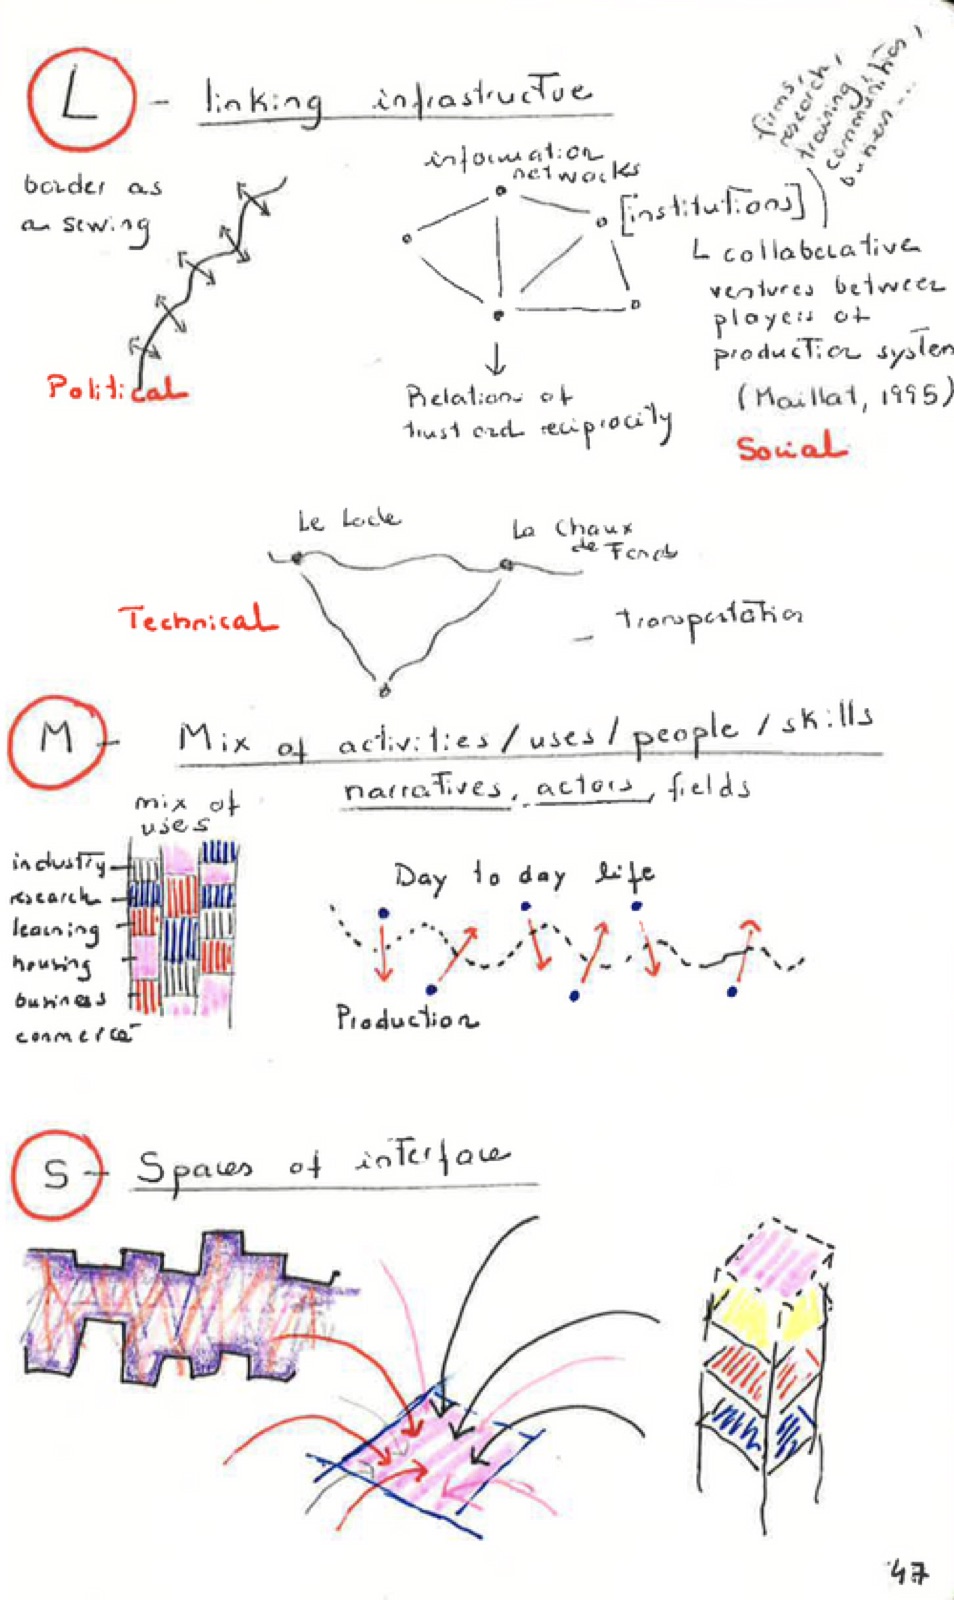 L - linking infrastructue
firms,
research,
training,
communities,
busines...
border as
a sewing
information
networks
[institutions])
L collaborative
ventures between
players of
production system
(Maillat, 1995)
Political
Relations of
trust and reciprocity
Social
Le Locle
La Chaux
de Fonds
Technical
- Transportation
M - Mix of activities / uses / people / skills
narratives, actors, fields
mix of
uses
industry
research
learning
housing
business
commerce
Day to day life
Production
S - Spaces of interface
47